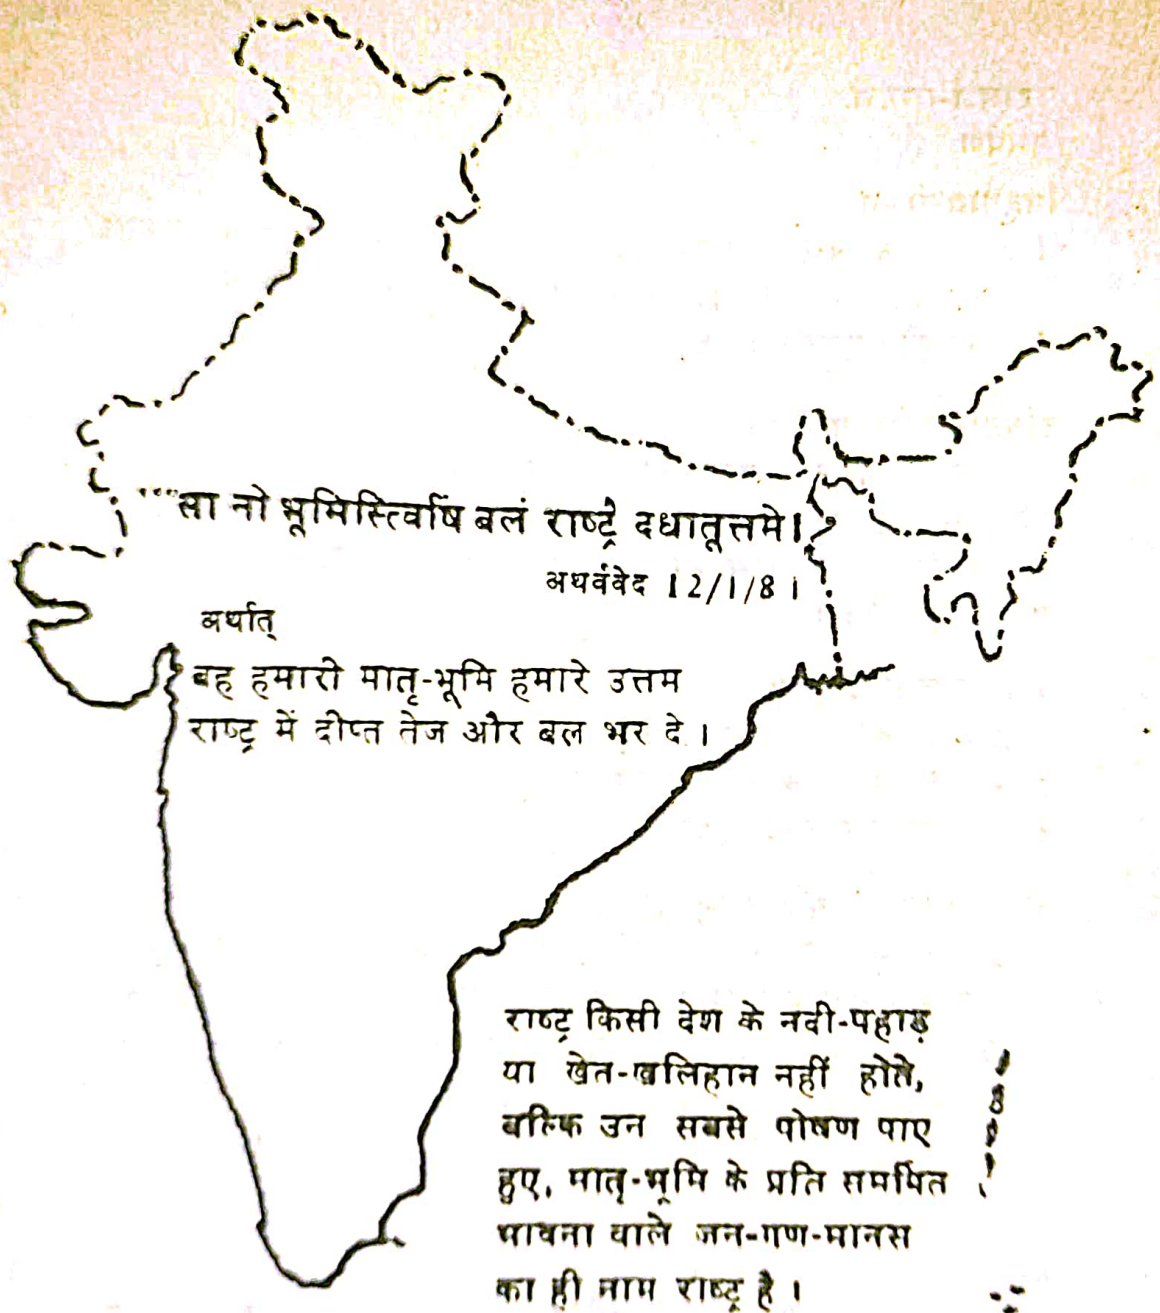 ····सा नो भूमिस्त्विषिं बलं राष्ट्रे दधातूत्तमे।
अथर्ववेद 12/1/8।
अर्थात्
वह हमारी मातृ-भूमि हमारे उत्तम
राष्ट्र में दीप्त तेज और बल भर दे।
राष्ट्र किसी देश के नदी-पहाड़
या खेत-खलिहान नहीं होते,
बल्कि उन सबसे पोषण पाए
हुए, मातृ-भूमि के प्रति समर्पित
भावना वाले जन-गण-मानस
का ही नाम राष्ट्र है।